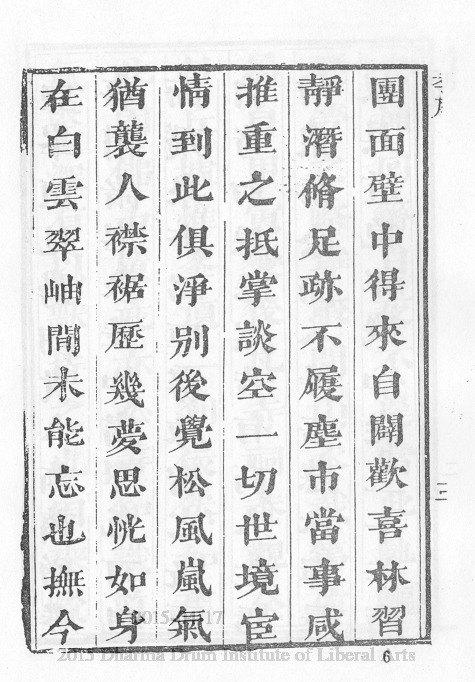 團面壁中得來自闢歡喜林習
靜潛脩足跡不履塵市當事咸
推重之抵掌談空一切世境宦
情到此俱淨別後覺松風嵐氣
猶襲人襟裾歷幾夢思恍如身
在白雲翠岫間未能忘也撫今
三
6
2015 Dharma Drum Institute of Liberal Arts